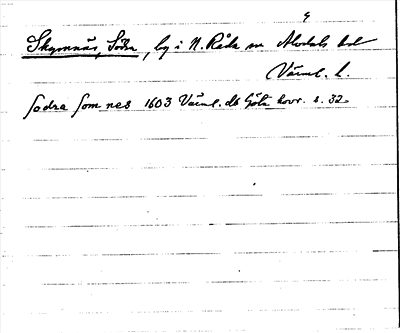 Skymnäs, Södra, by i N. Råda sn Älvdals hd
Värml. l.
sodra somnes 1603 Värml. db Göta hovr. s. 32